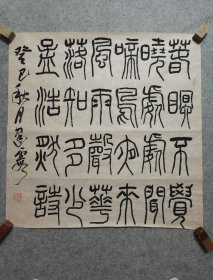 春眠不覺
曉處處聞
啼鳥夜來
風雨聲華
落知多少
孟浩然詩
癸巳秋月